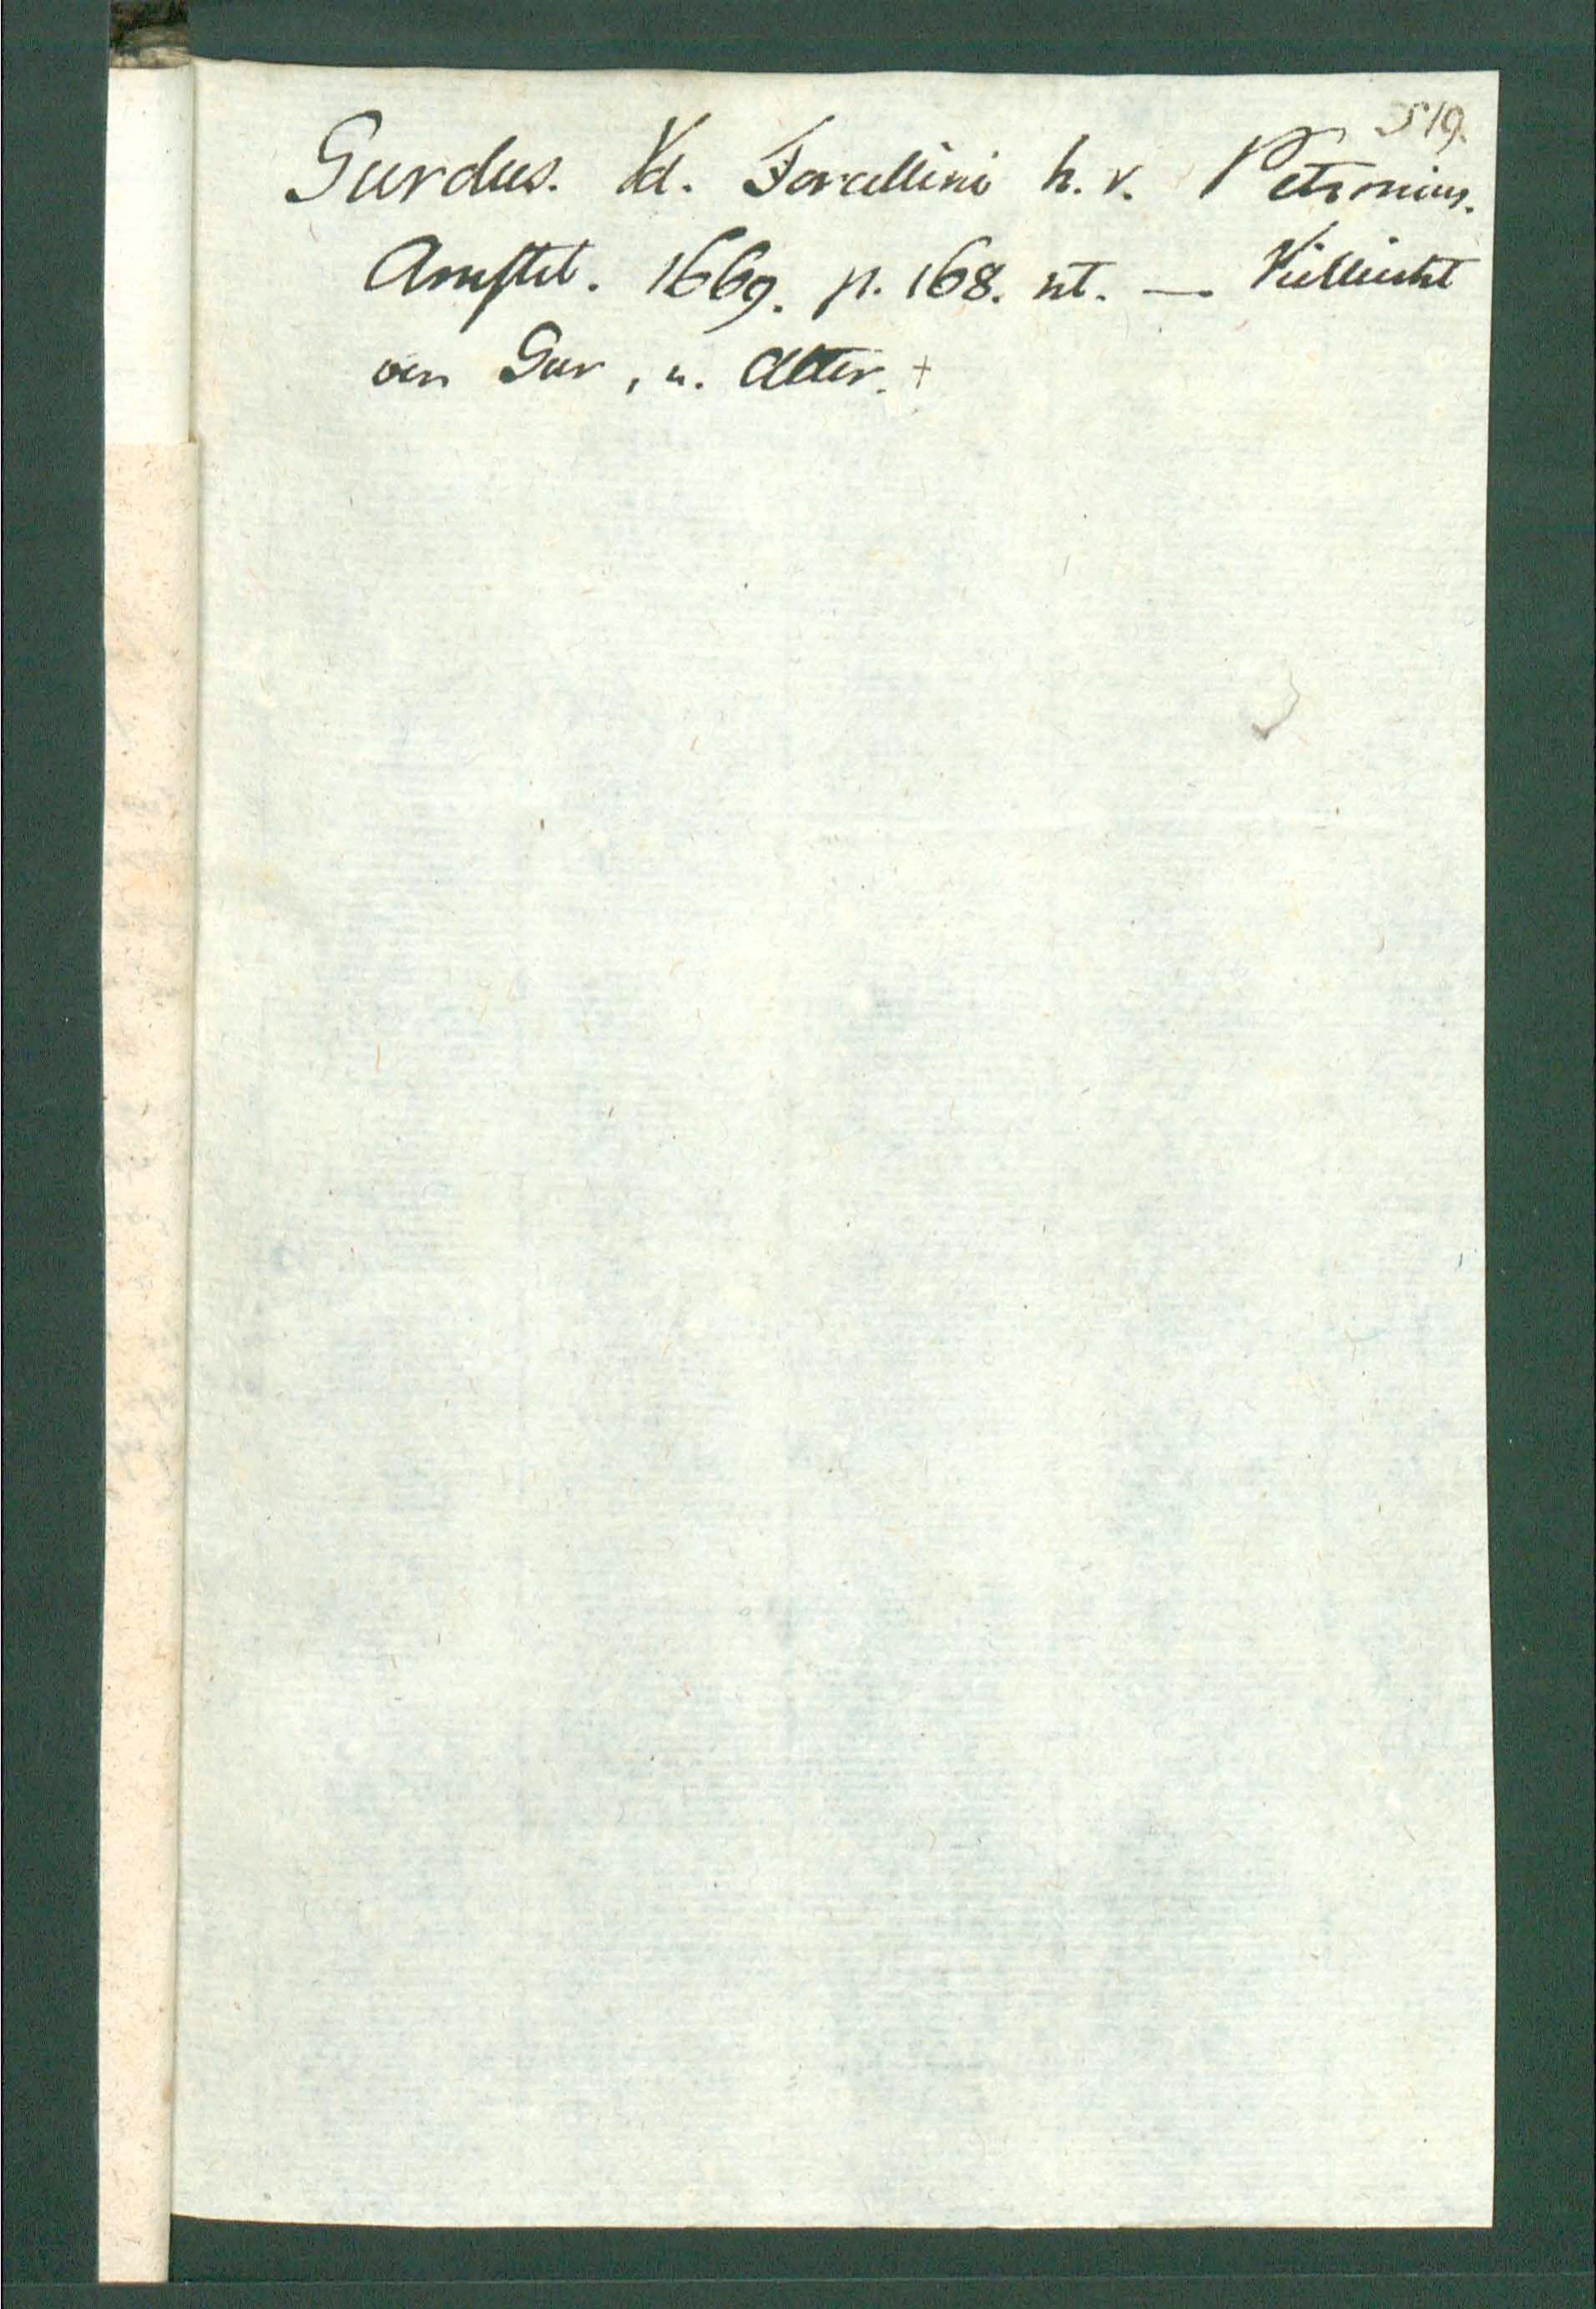 519.
Gurdus. Vd. Forcellini h. v. Petronius.
Amstel. 1669. p. 168. nt. — Vielleicht
von Gur, u. Alter. +